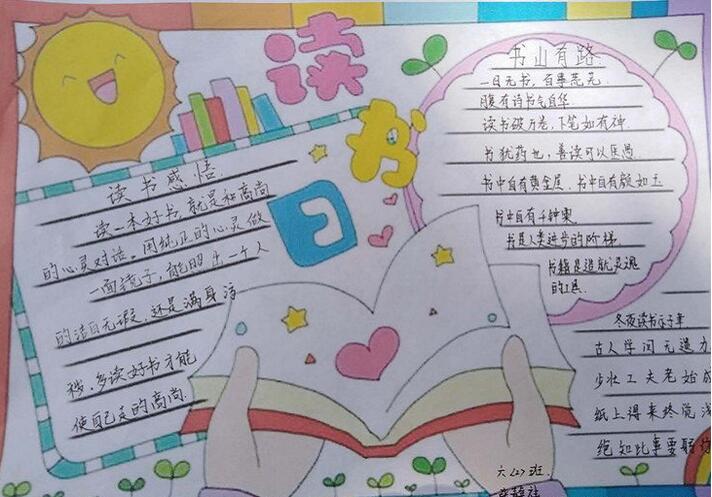 读
书
日
读书感悟
读一本好书，就是和高尚
的心灵对话。用纯正的心灵做
一面镜子，能照出一个人
的洁白无瑕，还是满身污
秽，多读好书才能
使自己变的高尚.
书山有路
一日无书，百事荒芜.
腹有诗书气自华
读书破万卷，下笔如有神
书犹药也，善读可以医愚
书中自有黄金屋，书中自有颜如玉
书中自有千钟粟
书是人类进步的阶梯
书籍是造就灵魂
的工具.
冬夜读书示子聿
古人学问无遗力
少壮工夫老始成
纸上得来终觉浅
绝知此事要躬行
六(2)班